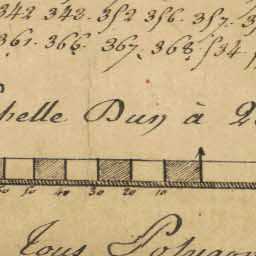 342 343. 352 356. 357.
361. 366. 367. 368. 534
helle Dun à 2
50 40 30 20 10
Tous Polygon